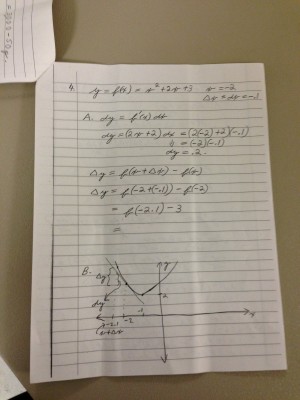 4. y = f(x) = x² + 2x + 3 x = -2
Δx = dx = -.1
A. dy = f'(x) dx
dy = (2x+2) dx = (2(-2)+2)(-.1)
= (-2)(-.1)
dy = .2
Δy = f(x+Δx) - f(x)
Δy = f(-2+(-.1)) - f(-2)
= f(-2.1) - 3
=
B.
y
Δy
dy
2
-2.1 -2 -1 x
(x+Δx